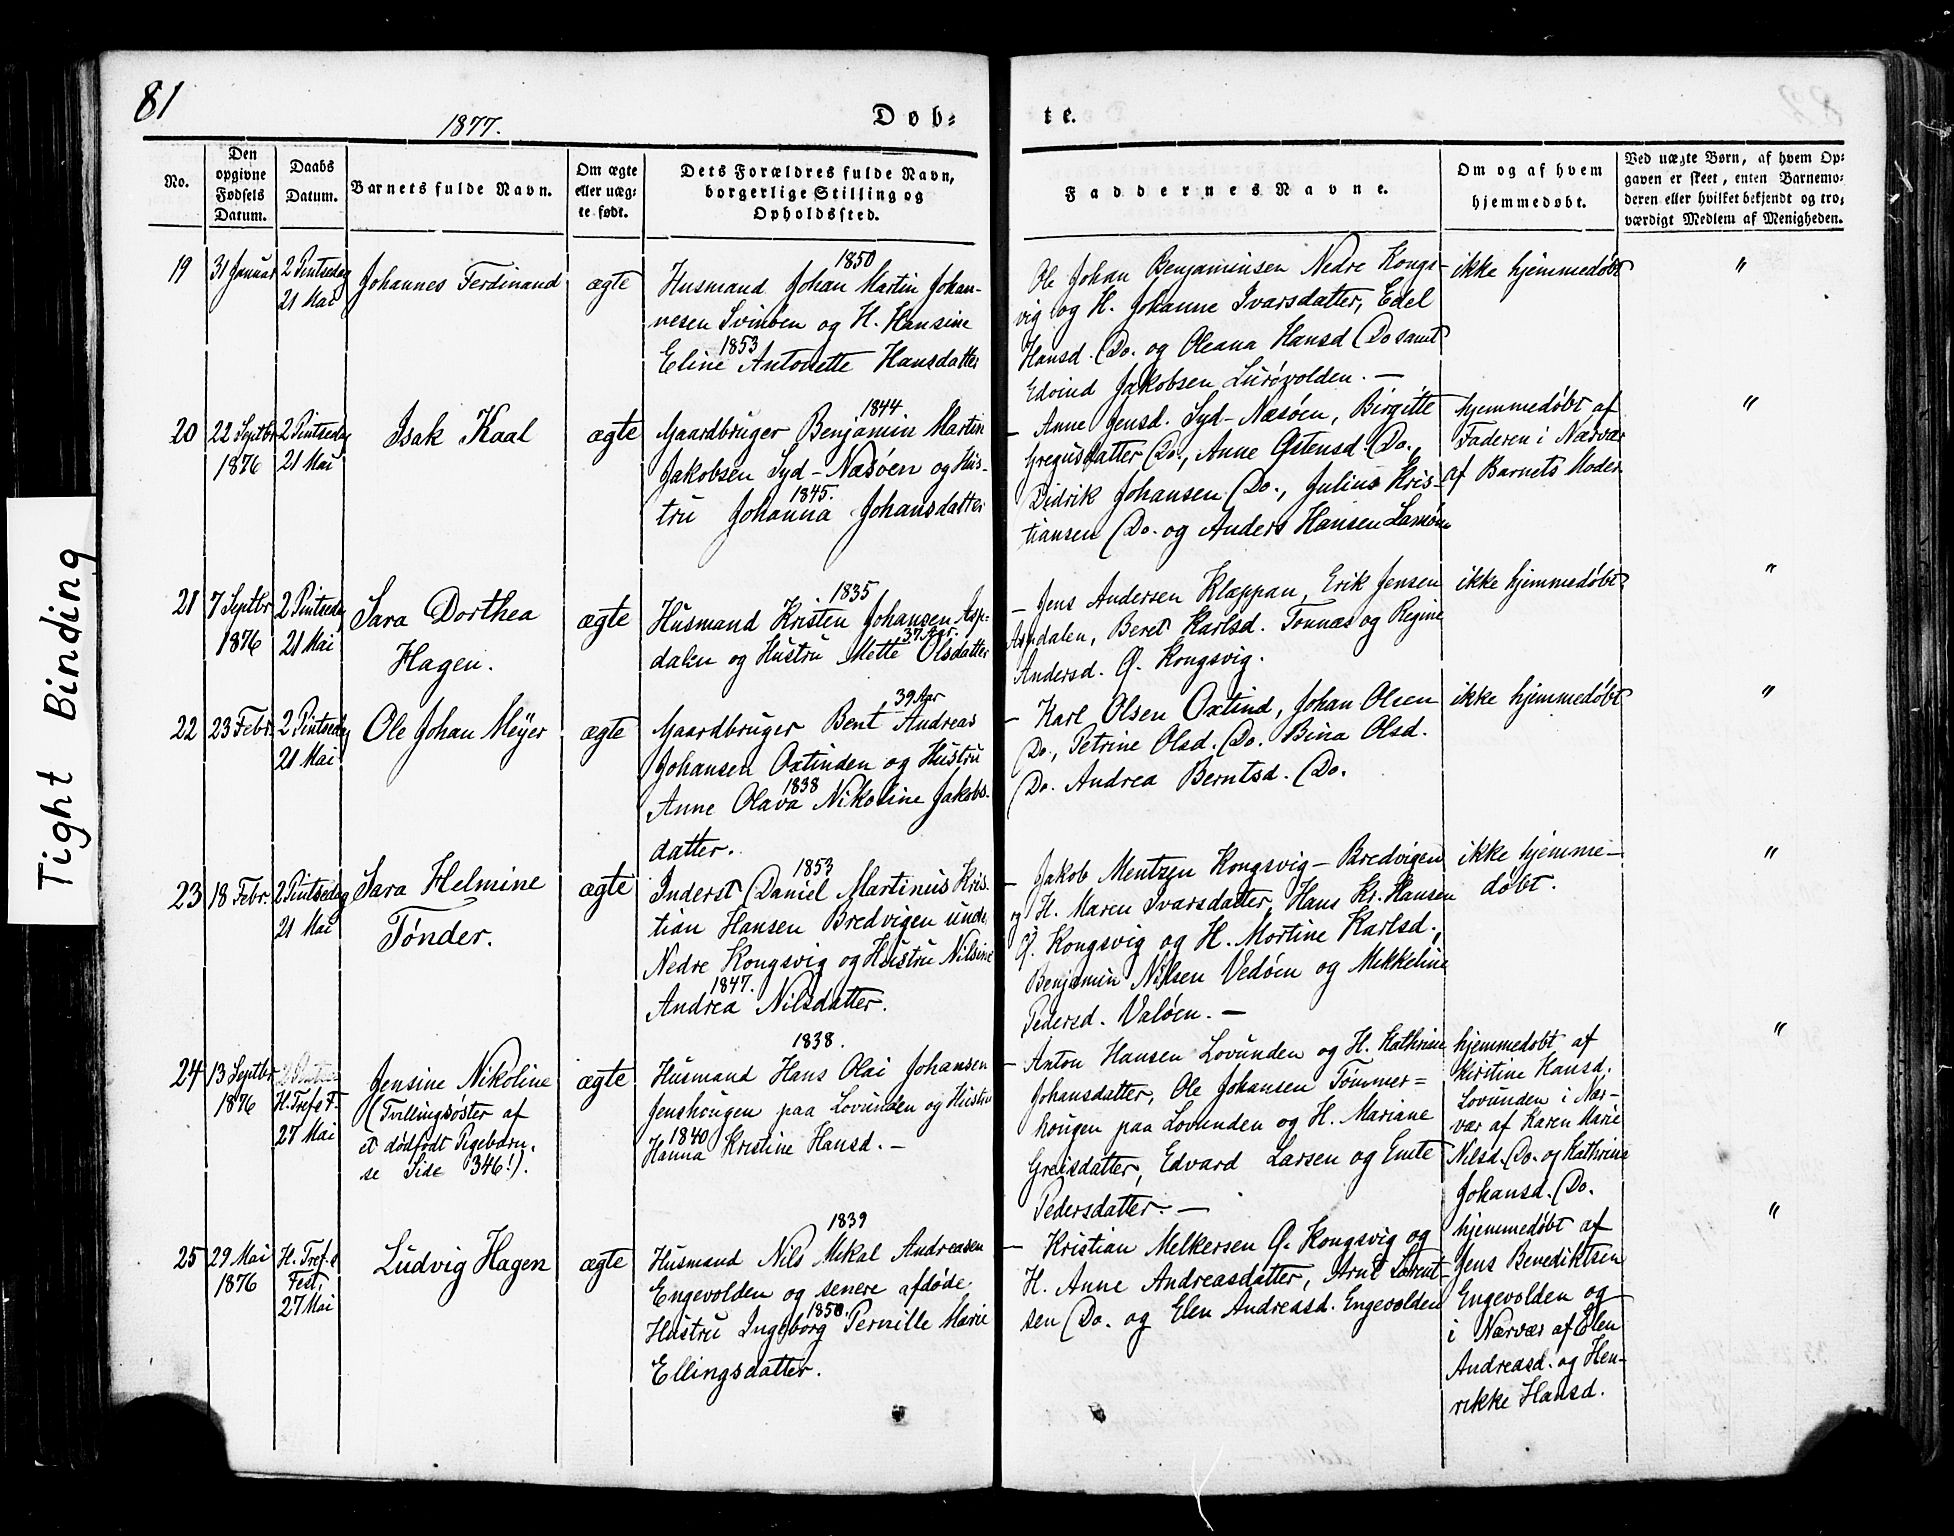 81
1877.
Döb-
te.
No.
Den
opgivne
Fødsels
Datum.
Daabs
Datum.
Barnets fulde Navn.
Om ægte
eller uæg-
te født.
Dets Forældres fulde Navn,
borgerlige Stilling og
Opholdssted.
Faddernes Navne.
Om og af hvem
hjemmedøbt.
Ved uægte Børn, af hvem Op-
gaven er skeet, enten Barnemo-
deren eller hvilket bekjendt og tro-
værdigt Medlem af Menigheden.
19
31 Januar
2 Pintsedag
21 Mai
Johannes Ferdinand
ægte
1850
Husmand Johan Martin Johan-
nesen Svinben og H. Hansine
1853
Eline Antonette Hansdatter
Ole Johan Benjaminsen Nedre Kongs-
vig og H. Johanne Ivarsdatter, Edel
Hansd. Do. og Oleana Hansd Do samt
Edvind Jakobsen Lurøvolden. —
ikke hjemmedøbt
"
20
22 Septbr
1876
2 Pintsedag
21 Mai
Isak Kaal
ægte
1844
Gaardbruger Benjamin Martin
Jakobsen Syd-Næsøen og Hus-
1845.
tru Johanna Johansdatter
— Anne Jensd. Syd-Næsøen, Birgitte
Gregusdatter Do., Anne Ostensd. Do.,
Didrik Johansen Do., Julius Kris-
tiansen Do. og Anders Hansen
hjemmedøbt af
Faderen i Nærvær
af Barnets Moder
"
21
7 Septbr
1876
2 Pintsedag
21 Mai
Sara Dorthea
Hagen.
ægte
1835
Husmand Kristen Johansen Asp-
37 Aar.
dalen og Hustru Mette Olsdatter
— Jens Andersen Klæppan, Erik Jensen
Aspdalen, Beret Karlsd. Tonnæs og Regine
Andersd. Ø. Kongsvig.
ikke hjemmedøbt
"
22
23 Febr.
2 Pintsedag
21 Mai
Ole Johan Meyer
ægte
39 Aar
Gaardbruger Bent Andreas
Johansen Oxtinden og Hustru
1838
Anne Olava Nikoline Jakobs-
datter.
— Karl Olsen Oxtind, Johan Olsen
Do., Petrine Olsd. Do. Bina Olsd.
Do. Andrea Berntsd. Do.
ikke hjemmedøbt
"
23
18 Febr.
2 Pintsedag
21 Mai
Sara Helmine
Tønder.
ægte
1853
Inderst Daniel Martinus Kris-
tian Hansen Bredvigen unde
Nedre Kongsvig og Hustru Nilsine
1847.
Andrea Nilsdatter.
— Jakob Mentzen Kongsvig-Bredvigen
og H. Maren Ivarsdatter, Hans Kr. Hansen
Ø. Kongsvig og H. Mortine Karlsd.,
Benjamin Nilsen Vedøen og Mekkeline
Pedersd. Valøen. —
ikke hjemme-
døbt.
"
24
13 Septbr
1876
H. Tref. F.
27 Mai
Jensine Nikoline
(Tvillingsøster af
et dødfødt Pigebarn.
se Side 346!).
ægte
1838.
Husmand Hans Olai Johansen
Jenshougen paa Lovunden og Hustru
1840
Hanna Kristine Hansd. —
— Anton Hansen Lovunden og H. Kathrine
Johansdatter, Ole Johansen Tømmer=
hougen paa Lovunden og H. Mariane
Greisdatter, Edvard Larsen og Emte
Pedersdatter. —
hjemmedøbt af
Kirstine Hansd.
Lovunden i Nær-
vær af Karen Marie
Nilsd. Do. og Kathrine
Johansd. Do.
"
25
29 Mai
1876
H. Tref.s
Fest.
27 Mai
Ludvig Hagen
ægte
1839
Husmand Nils Mikal Andreasen
Engevolden og senere afdøde
1850.
Hustru Ingeborg Pernille Marie
Ellingsdatter.
— Kristian Melkersen Ø. Kongsvig og
H. Anne Andreasdatter, Arnt Lorent-
sen Do. og Elen Andreasd. Engevolden
hjemmedøbt af
Jens Benediktsen
Engevolden og
i Nærvær af Elen
Andreasd. og Hen-
rikke Hansd.
"
Tight Binding